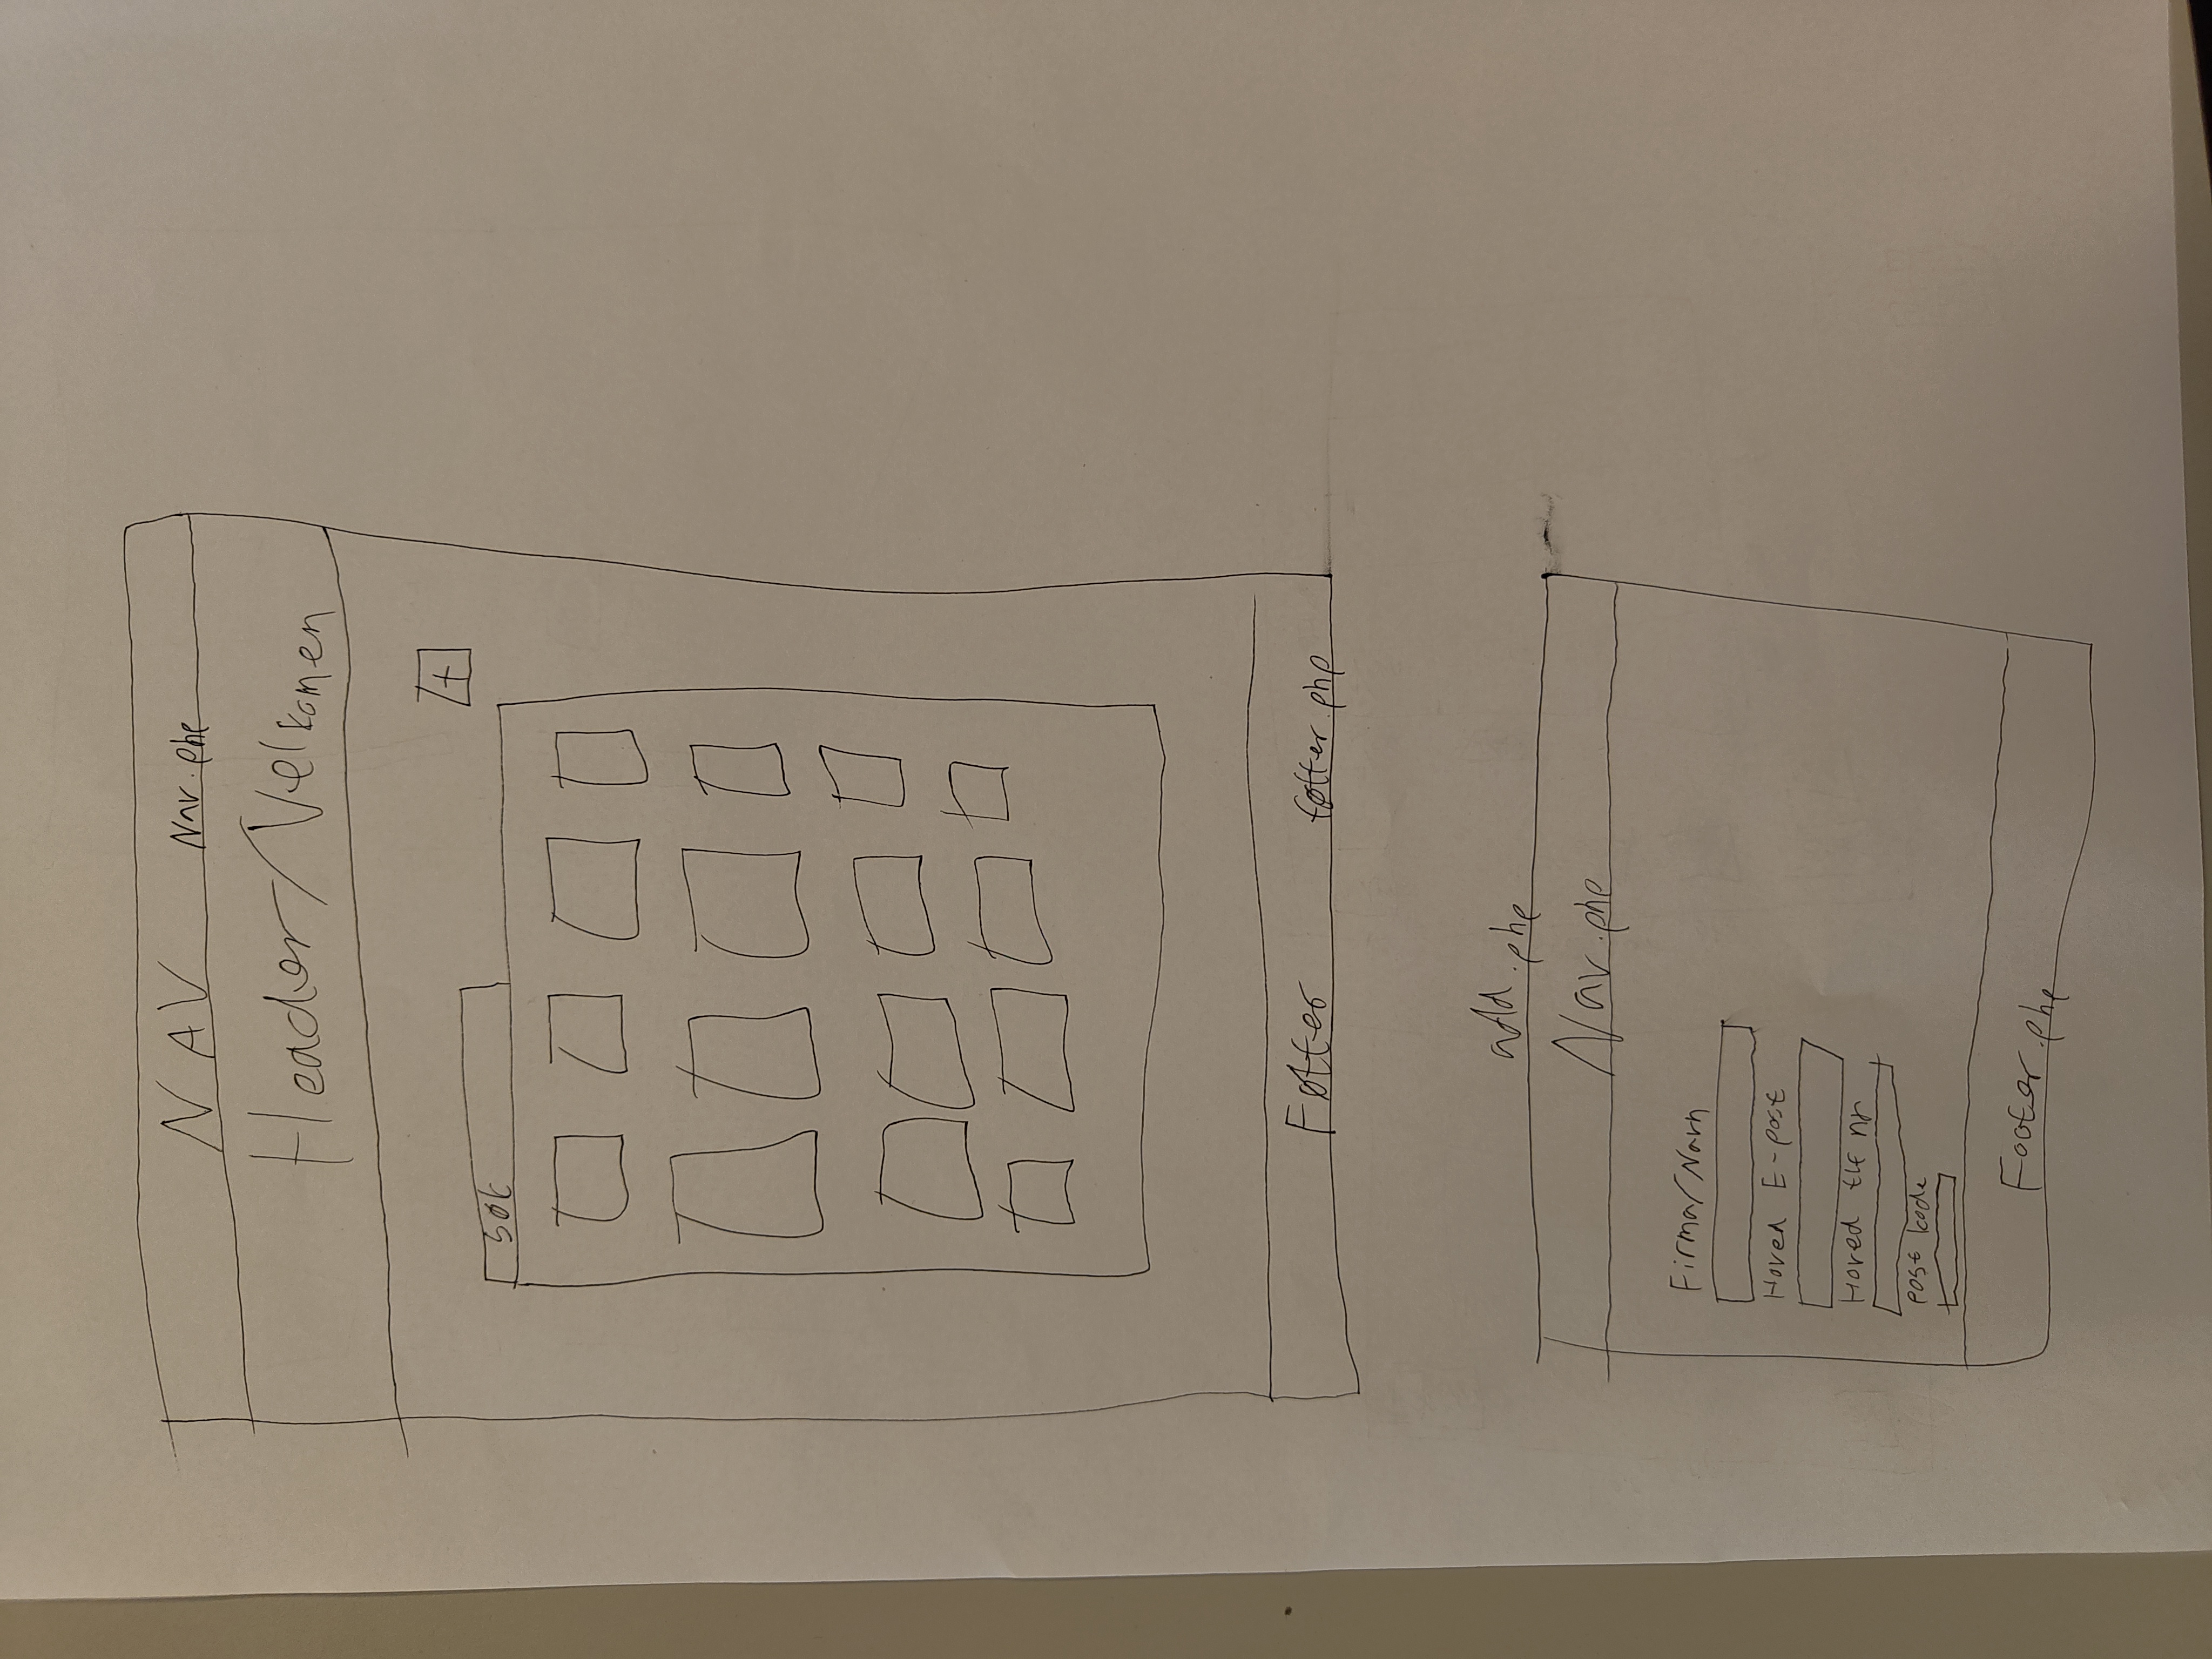 NAV Nav.php
Header/Velkomen
+
Søk
Føtter føtter.php
add.php
Nav.php
Firma/Navn
Hoved E-post
Hoved tlf nr
post kode
Footer.php